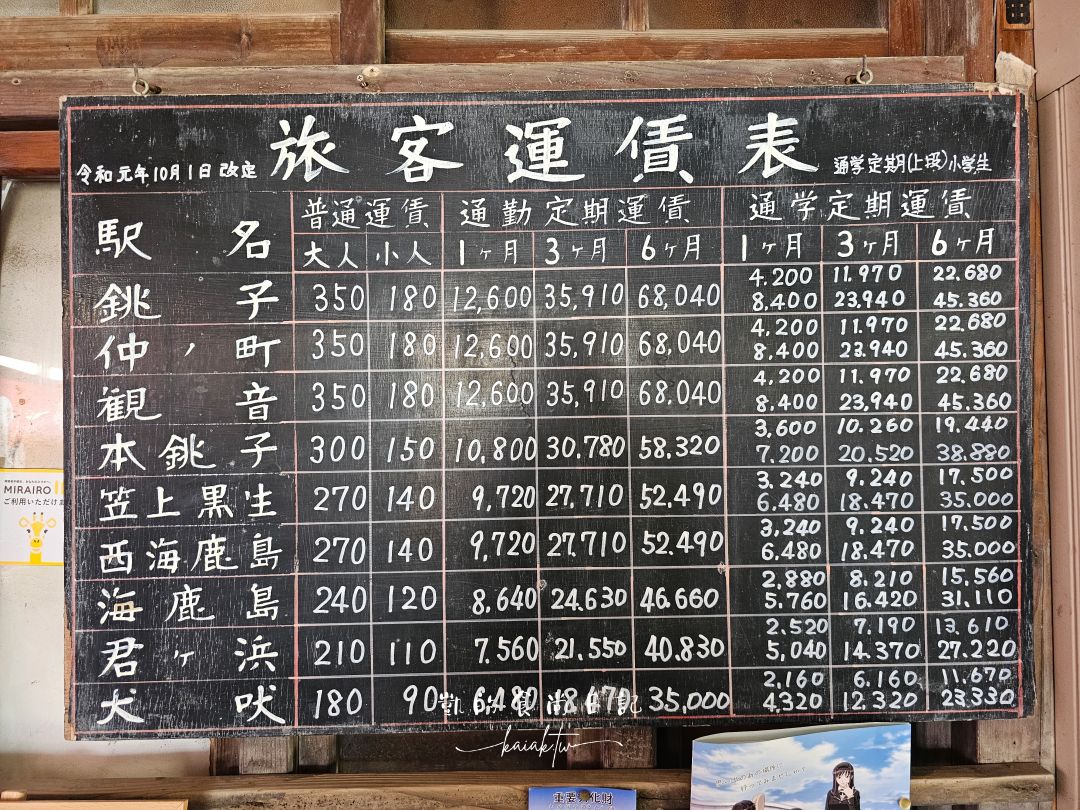 旅客運賃表
令和元年10月1日改定
通学定期(上段)小学生
駅名 普通運賃 通勤定期運賃 通学定期運賃
大人 小人 1ヶ月 3ヶ月 6ヶ月 1ヶ月 3ヶ月 6ヶ月
4.200 11.970 22.680
銚子 350 180 12,600 35,910 68,040 8,400 23,940 45.360
4,200 11.970 22.680
仲ノ町 350 180 12,600 35,910 68,040 8,400 23.940 45.360
4,200 11.970 22.680
観音 350 180 12,600 35,910 68,040 8,400 23,940 45.360
3,600 10.260 19.440
本銚子 300 150 10,800 30.780 58.320 7.200 20.520 38.880
3.240 9.240 17.500
笠上黒生 270 140 9,720 27.710 52.490 6.480 18.470 35.000
3,240 9.240 17.500
西海鹿島 270 140 9,720 27.710 52.490 6.480 18.470 35.000
2.880 8.210 15.560
海鹿島 240 120 8.640 24.630 46.660 5.760 16.420 31.110
2.520 7.190 13.610
君ヶ浜 210 110 7.560 21.550 40.830 5,040 14.370 27.220
2,160 6.160 11.670
犬吠 180 90 6,480 18,470 35,000 4,320 12,320 23.330
MIRAIRO
ご利用いただけま
kaiak.tw
重要文化財